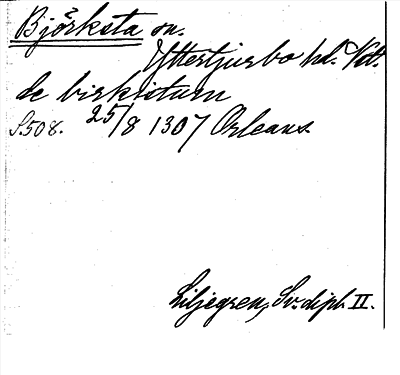 Björksta sn.
Yttertjurbo hd. Vstl.
de birkistum
S.508. 25/8 1307 Orleans.
Liljegren, Sv. dipl. II.